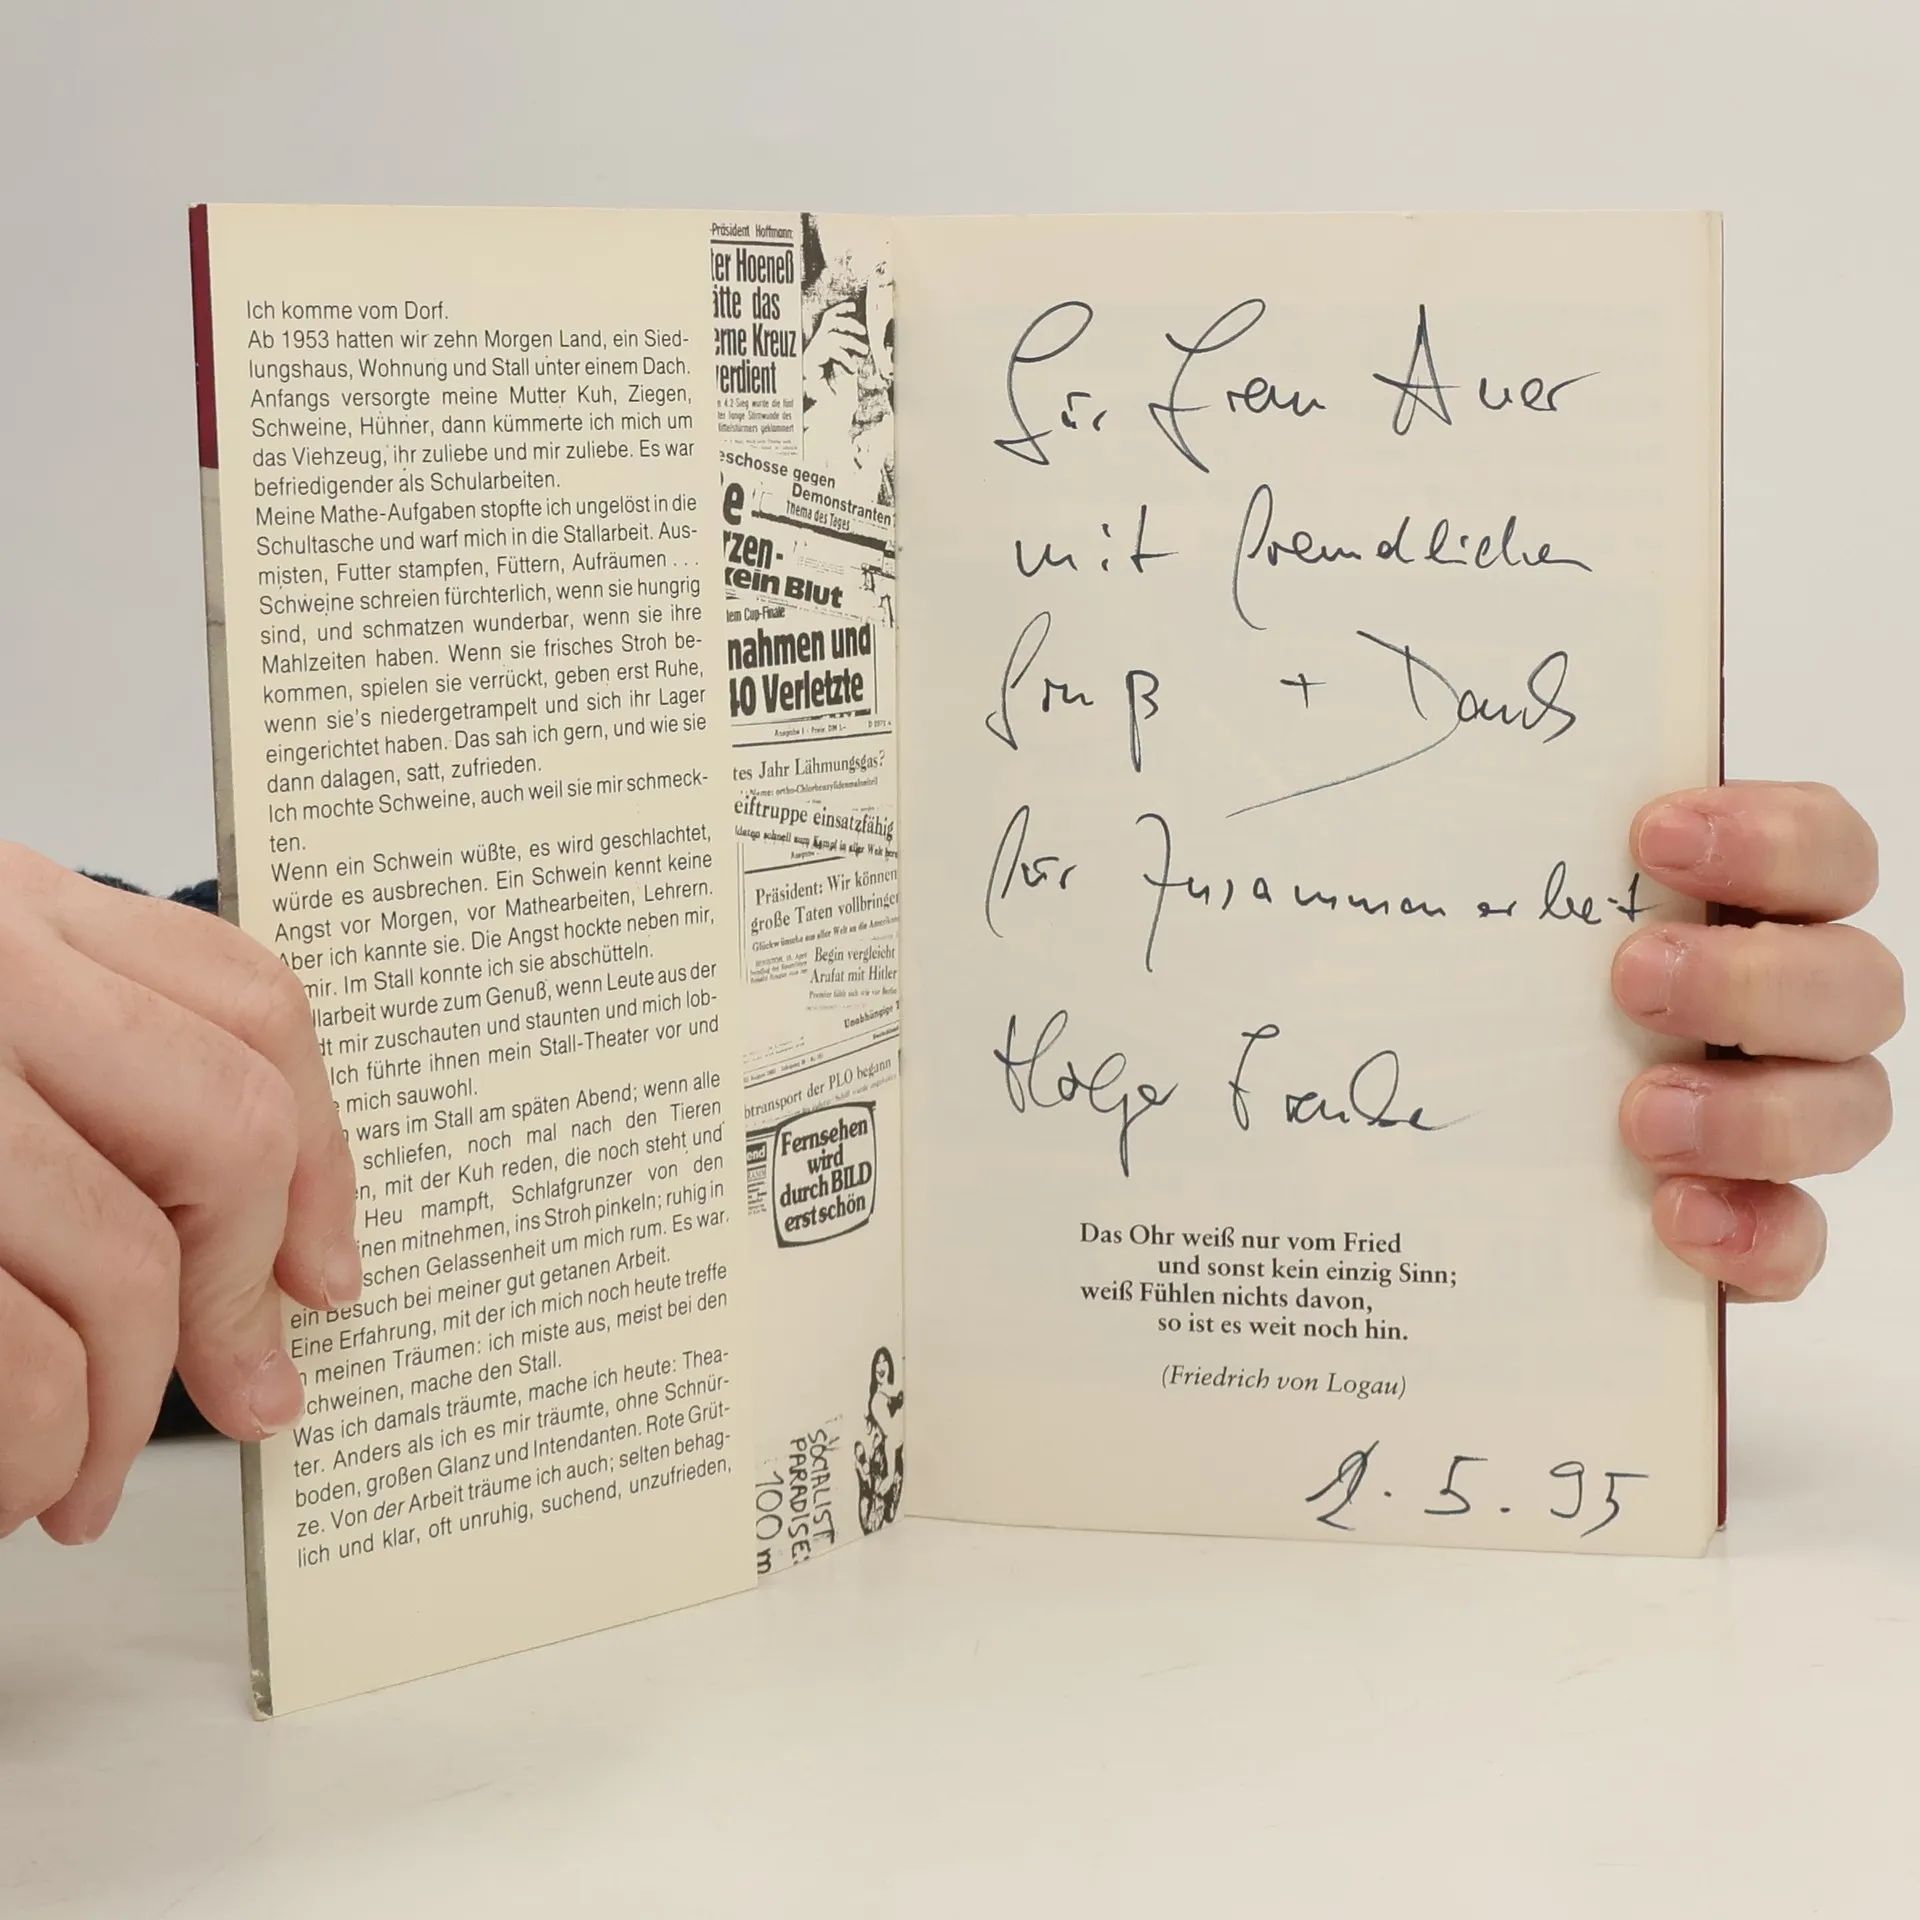 Ich komme vom Dorf.
Ab 1953 hatten wir zehn Morgen Land, ein Sied-
lungshaus, Wohnung und Stall unter einem Dach.
Anfangs versorgte meine Mutter Kuh, Ziegen,
Schweine, Hühner, dann kümmerte ich mich um
das Viehzeug, ihr zuliebe und mir zuliebe. Es war
befriedigender als Schularbeiten.
Meine Mathe-Aufgaben stopfte ich ungelöst in die
Schultasche und warf mich in die Stallarbeit. Aus-
misten, Futter stampfen, Füttern, Aufräumen . . .
Schweine schreien fürchterlich, wenn sie hungrig
sind, und schmatzen wunderbar, wenn sie ihre
Mahlzeiten haben. Wenn sie frisches Stroh be-
kommen, spielen sie verrückt, geben erst Ruhe,
wenn sie's niedergetrampelt und sich ihr Lager
eingerichtet haben. Das sah ich gern, und wie sie
dann dalagen, satt, zufrieden.
Ich mochte Schweine, auch weil sie mir schmeck-
ten.
Wenn ein Schwein wüßte, es wird geschlachtet,
würde es ausbrechen. Ein Schwein kennt keine
Angst vor Morgen, vor Mathearbeiten, Lehrern.
Aber ich kannte sie. Die Angst hockte neben mir,
mir. Im Stall konnte ich sie abschütteln.
llarbeit wurde zum Genuß, wenn Leute aus der
dt mir zuschauten und staunten und mich lob-
Ich führte ihnen mein Stall-Theater vor und
mich sauwohl.
wars im Stall am späten Abend; wenn alle
schliefen, noch mal nach den Tieren
en, mit der Kuh reden, die noch steht und
Heu mampft, Schlafgrunzer von den
inen mitnehmen, ins Stroh pinkeln; ruhig in
schen Gelassenheit um mich rum. Es war
ein Besuch bei meiner gut getanen Arbeit.
Eine Erfahrung, mit der ich mich noch heute treffe
n meinen Träumen: ich miste aus, meist bei den
chweinen, mache den Stall.
Was ich damals träumte, mache ich heute: Thea-
ter. Anders als ich es mir träumte, ohne Schnür-
boden, großen Glanz und Intendanten. Rote Grüt-
ze. Von der Arbeit träume ich auch; selten behag-
lich und klar, oft unruhig, suchend, unzufrieden,
Präsident Hoffmann:
ter Hoeneß
ätte das
erne Kreuz
verdient
eschosse gegen
Demonstranten
Thema des Tages
e
rzen-
kein Blut
dem Cup-Finale
nahmen und
40 Verletzte
tes Jahr Lähmungsgas?
eiftruppe einsatzfähig
Präsident: Wir können
große Taten vollbringen
Begin vergleicht
Arafat mit Hitler
Unabhängige
btransport der PLO begann
Fernsehen
wird
durch BILD
erst schön
SOCIALIST
PARADISE:
100 m
Für Frau Auer
mit freundlichem
Gruß + Dank
für Zusammenarbeit
Holger Franke
Das Ohr weiß nur vom Fried
und sonst kein einzig Sinn;
weiß Fühlen nichts davon,
so ist es weit noch hin.
(Friedrich von Logau)
2.5.95